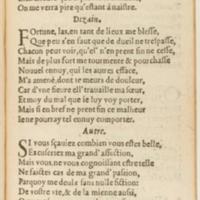 On me verra pire qu'estant à naistre.
Dizain.
FOrtune, las, en tant de lieux me blesse,
Que peu s'en faut que de dueil ne trespasse,
Chacun peut voir, qu'el' n'en prent fin ne cesse,
Mais de plus fort me tourmente & pourchasse
Nouuel ennuy, qui les autres efface,
M'y amené, dont ie meurs de douleur,
Car d'vne fieure ell' trauaille ma sœur,
Et moy du mal que ie luy voy porter,
Mais si en bref ne prent fin ce malheur
Ie ne pourray tel ennuy comporter.
Autre.
SI vous sçauiez combien vous estes belle,
Excuseriez ma grand' affection,
Mais vous ne vous cognoissant estre telle
Ne faictes cas de ma grand' passion,
Parquoy me deuls sans nulle fiction:
De vostre vie, & de la mienne aussi,